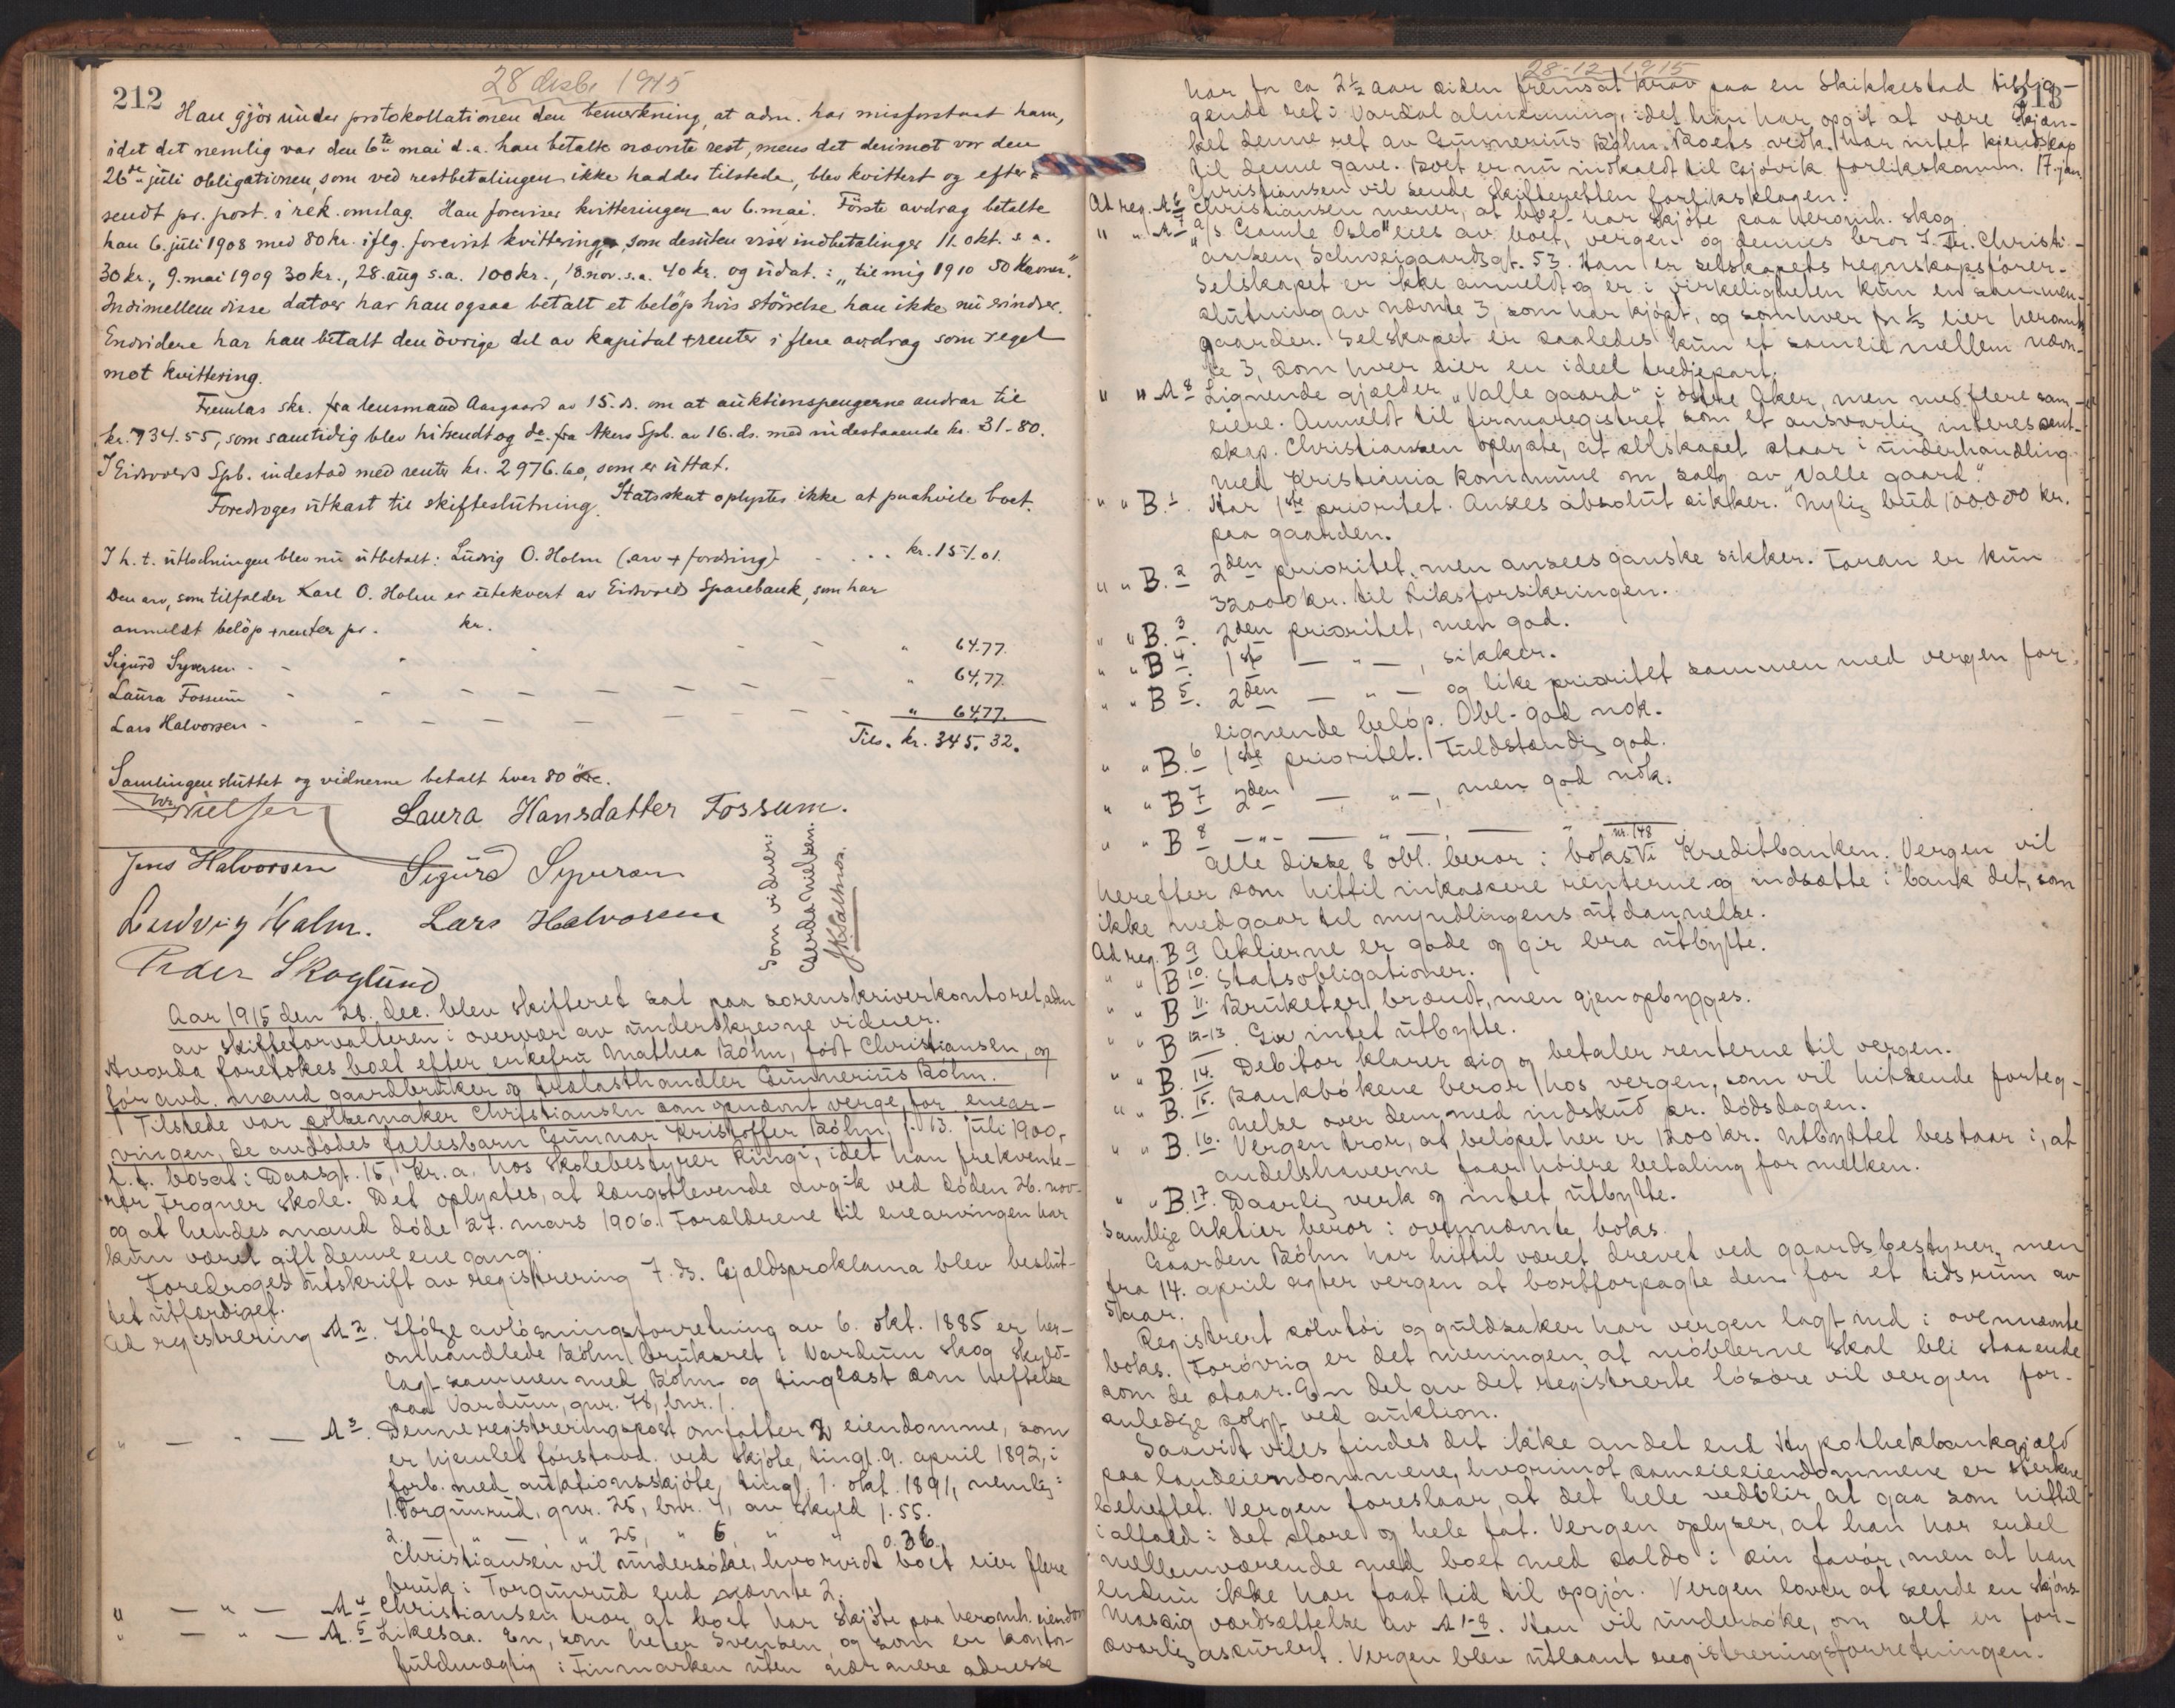 28 desbr 1915
212
Han gjör under protokollationen den bemerkning, at adm. har misforstaat ham,
idet det nemlig var den 6te mai d.a. han betalte nævnte rest, mens det derimot var den
26de juli obligationen, som ved restbetalingen ikke haddes tilstede, blev kvittert og efter-
sendt pr. post i rek. omslag. Han foreviser kvitteringen av 6. mai. Förste avdrag betalte
han 6. juli 1908 med 80 kr. iflg. forevist kvittering, som desuten viser indbetalinger 11. okt. s.a.
30 kr., 9. mai 1909 30 kr., 28. aug s.a. 100 kr., 18. nov. s.a. 40 kr. og udat.: "til mig 1910 50 kroner."
Indimellem disse datoer har han ogsaa betalt et belöp hvis störrelse han ikke nu erindrer.
Endvidere har han betalt den övrige del av kapital + renter i flere avdrag som regel
mot kvittering.
Fremlas skr. fra lensmand Aasgaard av 15. ds. om at auktionspengerne andrar til
kr. 734.55, som samtidig blev hitsendt og do. fra Akers Spb. av 16. ds. med indestaaende kr. 31-80.
I Eidsvolds Spb. indestod med renter kr. 2976.60, som er uttat.
Foredroges utkast til skifteslutning. Statsskat oplystes ikke at paahvile boet.
I h. t. utlodningen blev nu utbetalt: Ludvig O. Holm (arv + fordring) - - .. kr. 151.01.
Den arv, som tilfalder Karl O. Holm er utekvert av Eidsvolds Sparebank, som har
anmeldt belöp + renter pr. kr.
Sigurd Syversen - - - - - - " 64.77.
Laura Fossum - - - - - - - - " 64.77.
Lars Halvorsen - - - - - - - - " 64.77.
Tils. kr. 345.32.
Samlingen sluttet og vidnerne betalt hver 80 öre.
Nielsen Laura Hansdatter Fossum.
Jens Halvorsen Sigurd Syversen
Ludvig Holm. Lars Halvorsen
Peder Skoglund
Som vidner:
Gerda Nielsen.
Aar 1915 den 28. dec. blev skifteret sat paa sorenskriverkontoret, adm
av skifteforvalteren i overvær av underskrevne vidner.
Hvorda foretokes boet efter enkefru Mathea Böhn, född Christiansen, og
før avd. mand gaardbruker og trælasthandler Gunnerius Böhn.
Tilstede var pölsemaker Christiansen som opnævnt verge for enear-
vingen, de avdödes fællesbarn Gunnar Kristoffer Böhn, f. 13. juli 1900,
f. t. bosat i Daasgt. 15, Kr.a. hos skolebestyrer Ringi, idet han frekvente-
rer Frogner skole. Det oplystes, at længstlevende avgik ved döden 26. nov.
og at hendes mand döde 27. mars 1906. Forældrene til enearvingen har
kun været gift denne ene gang.
Foredroges utskrift av registrering 7. ds. Gjældsproklama blev beslut-
tet utfærdiget.
Ad registrering A 2. Ifölge avlösningsforretning av 6. okt. 1885 er her-
omhandlede Böhn bruksret i Vardum skog skyld-
lagt sammen med Böhn og tinglæst som heftelse
paa Vardum, gnr. 78, bnr. 1.
" — " — A 3. Denne registreringspost omfatter 2 eiendomme, som
er hjemlet förstavd. ved skjöte, tingl. 9. april 1892, i
forb. med auktionsskjöte, tingl. 1. okt. 1891, nemlig:
1. Torgunrud, gnr. 25, bnr. 4, av skyld 1.55.
2. — " — " 25, " 6 " " 0.36.
Christiansen vil undersöke, hvorvidt boet eier flere
bruk i Torgunrud end nævnte 2.
" — " — A 4 Christiansen tror at boet har skjöte paa heromh. eiendom
" — " — A. 5 Likesaa. En, som heter Svensen og som er kontor-
fuldmægtig i Finmarken uten nærmere adresse
28-12-1915
213
har for ca 2½ aar siden fremsat krav paa en Skikkestad tillig-
gende ret i Vardal almenning, idet han har opgit at være skjæn-
ket denne ret av Gunnerius Böhn. Boets vedk. har intet kjendskap
til denne gave. Boet er nu indkaldt til Gjövik forlikskomm. 17. jan.
Christiansen vil sende skifteretten forliksklagen.
Ad reg. A 6 Christiansen mener, at boet har skjöte paa heromh. skog
" " A 7 "A/s Gamle Oslo" eies av boet, vergen og dennes bror J. Fr. Christi-
ansen, Schweigaardsgt. 53. Han er selskapets regnskapsförer.
Selskapet er ikke anmeldt og er i virkeligheten kun en sammen-
slutning av nævnte 3, som har kjöpt, og som hver for ⅓ eier heromh.
gaarder. Selskapet er saaledes kun et sameie mellem nævn-
te 3, som hver eier en ideel tredjepart.
" " A 8 Lignende gjælder "Valle gaard" i östre Aker, men med flere sam-
eiere. Anmeldt til firmaregistret som et ansvarlig interessent-
skap. Christiansen oplyste, at selskapet staar i underhandling
med Kristiania kommune om salg av "Valle gaard".
" " B. 1. Har 1ste prioritet. Ansees absolut sikker. Nylig bud 100000 kr.
paa gaarden.
" " B. 2 2den prioritet, men ansees ganske sikker. Foran er kun
32000 kr. til Livsforsikringen.
" " B. 3. 2den prioritet, men god.
" " B 4. 1ste — " —, sikker.
" " B 5. 2den — " — og like prioritet sammen med vergen for
lignende belöp. Obl. god nok.
" " B. 6 1ste prioritet. Fuldstændig god.
" " B 7 2den — " —, men god nok.
" " B 8 — " — — " — — "
Alle disse 8 obl. beror i boks nr. 148 i Kreditbanken. Vergen vil
herefter som hittil inkassere renterne og indsætte i bank det, som
ikke medgaar til myndlingens utdannelse.
Ad reg. B 9 Aktierne er gode og gir bra utbytte.
" " B 10. Statsobligationer.
" " B 11. Bruket er brændt, men gjenopbygges.
" " B 12-13. Gir intet utbytte.
" " B. 14. Debitor klarer sig og betaler renterne til vergen.
" " B. 15. Bankbökene beror hos vergen, som vil hitsende forteg-
nelse over dem med indskud pr. dödsdagen.
" " B. 16. Vergen tror, at belöpet her er 1200 kr. Utbyttet bestaar i, at
andelshaverne faar höiere betaling for melken.
" " B. 17. Daarlig verk og intet utbytte.
Samtlige Aktier beror i ovennævnte boks.
Gaarden Böhn har hittil været drevet ved gaardsbestyrer, men
fra 14. april agter vergen at bortforpagte den for et tidsrum av
5 aar.
Registrert sölvtöi og guldsaker har vergen lagt ind i ovennævnte
boks. Forövrig er det meningen at möblerne skal bli staaende
som de staar. En del av det registrerte lösöre vil vergen for-
anledige solgt ved auktion.
Saavidt vites findes det ikke andet end Hypothekbankgjæld
paa landeiendommene, hvorimot sameieeiendommene er sterkere
beheftet. Vergen foreslaar, at det hele vedblir at gaa som hittil
ialfald i det store og hele tat. Vergen oplyser, at han har endel
mellemværende med boet med saldo i sin favör, men at han
endnu ikke har faat tid til opgjör. Vergen lover at sende en skjöns-
mæssig værdsættelse av A 1-8. Han vil undersöke, om alt er for-
svarlig assurert. Vergen blev utlaant registreringsforretningen.